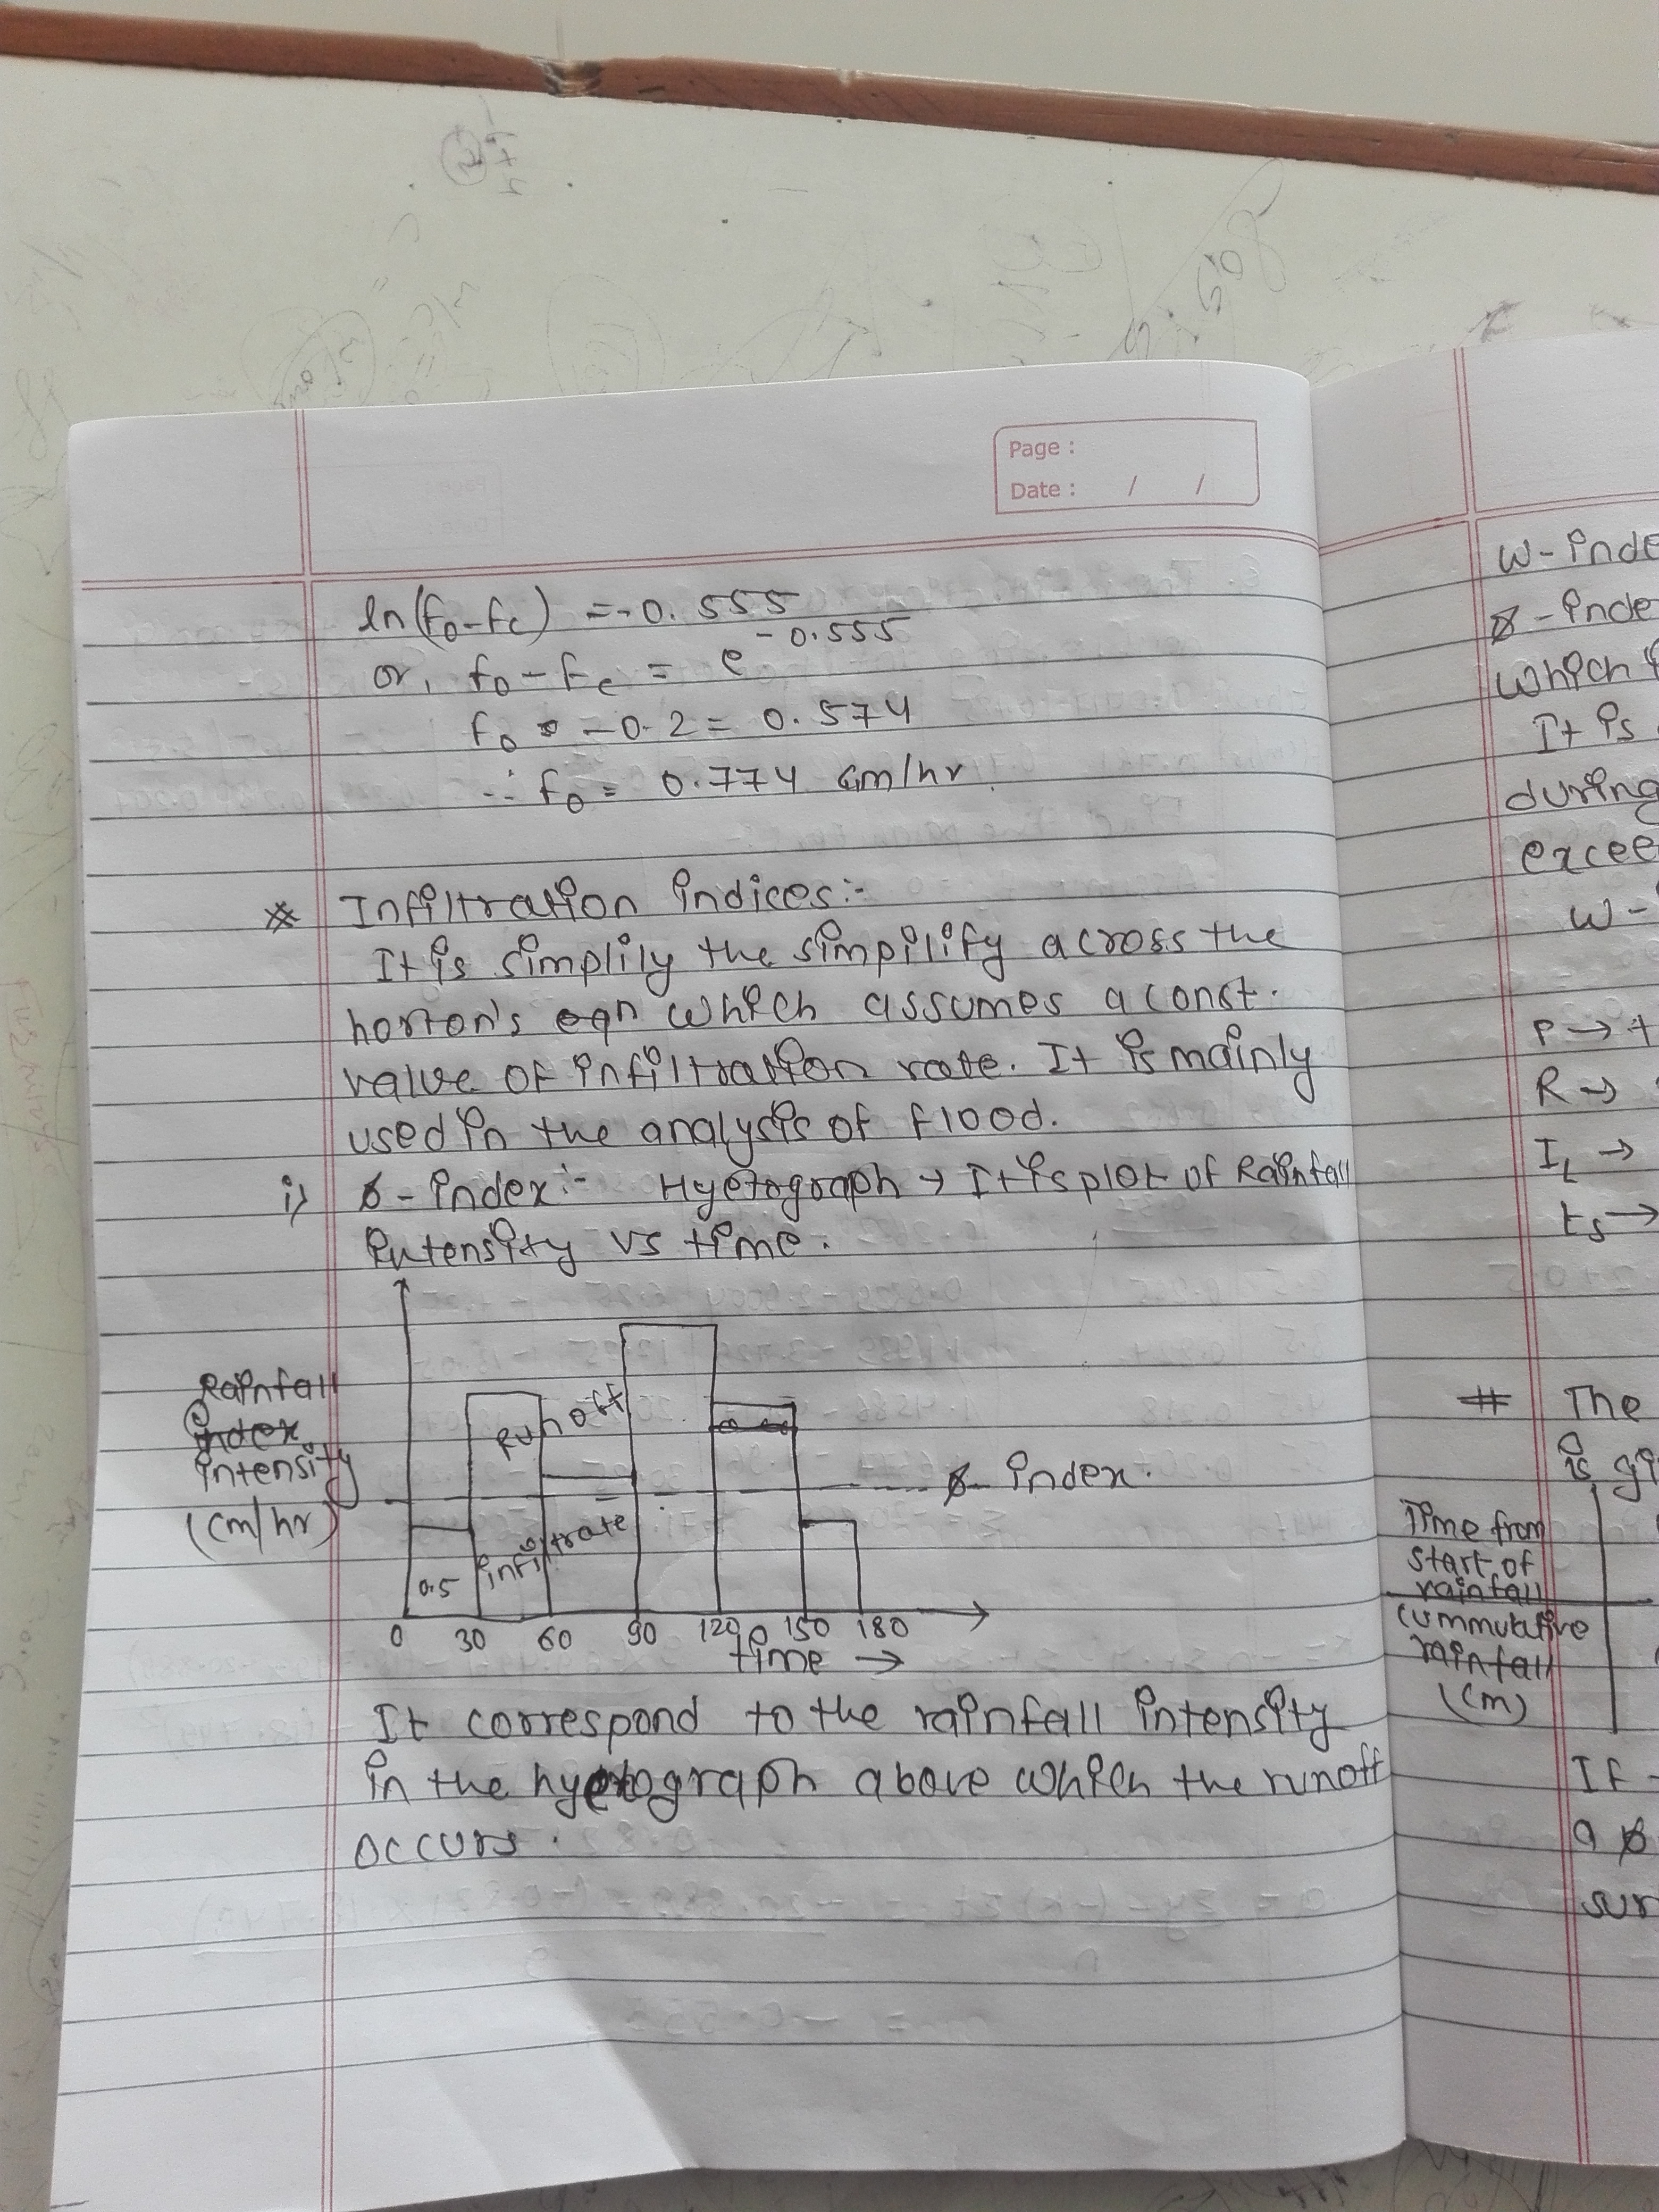 Page :
Date : / /
ln(fo-fc) = -0.555
or, fo - fc = e^-0.555
fo - 0.2 = 0.574
∴ fo = 0.774 cm/hr
* Infiltration indices:-
It is simplily the simpilify across the
horton's eqn which assumes a const.
value of infiltration rate. It is mainly
used in the analysis of flood.
i) ϕ - index:- Hyetograph → It is plot of Rainfall
intensity vs time.
Rainfall
index
intensity
(cm/hr)
Runoff
ϕ- index.
infiltrate
0.5
0 30 60 90 120 150 180
time →
It correspond to the rainfall intensity
in the hyetograph above which the runoff
occurs.
w - inde
ϕ - inde
which
It is
during
excee
w -
P →
R →
IL →
ts →
# The
is gi
Time from
start of
rainfall
cummutative
rainfall
(cm)
If
a ϕ
sur